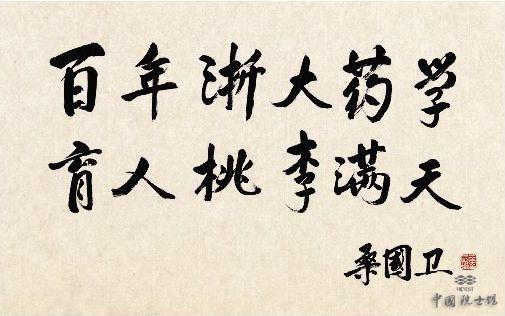 百年浙大药学
育人桃李满天
桑國卫
中國院士馆